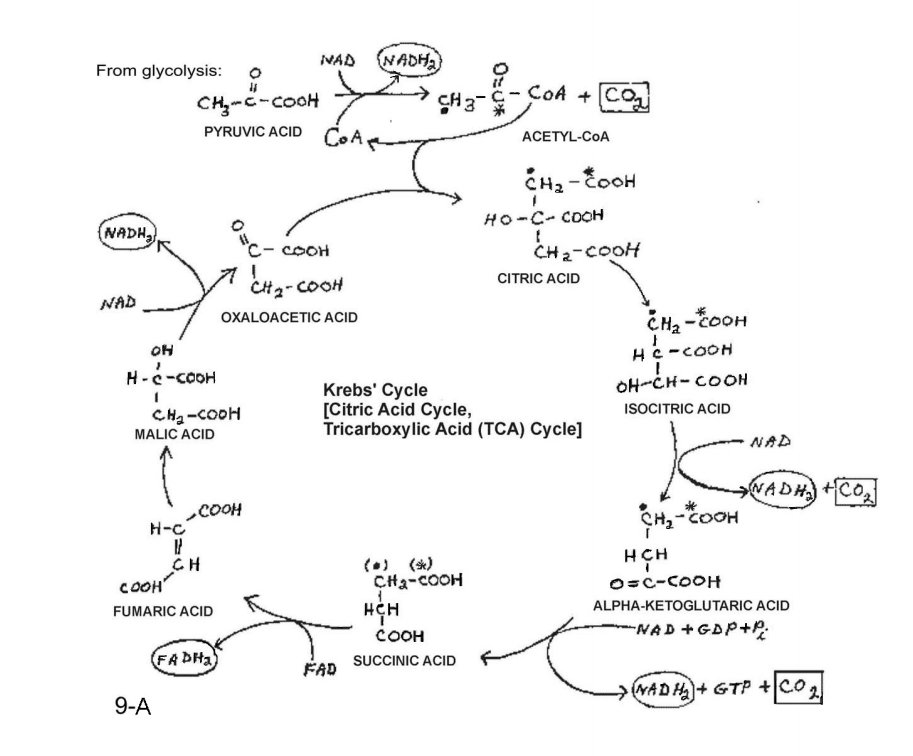 From glycolysis:
NAD
NADH₂
O
CH₃-C-COOH
PYRUVIC ACID
O
CH₃-C-CoA + CO₂
*
ACETYL-CoA
CoA
* CH₂-COOH
HO-C-COOH
CH₂-COOH
CITRIC ACID
NADH₂
NAD
O
C-COOH
CH₂-COOH
OXALOACETIC ACID
* CH₂-COOH
H C-COOH
OH-CH-COOH
ISOCITRIC ACID
OH
H-C-COOH
CH₂-COOH
MALIC ACID
Krebs' Cycle
[Citric Acid Cycle,
Tricarboxylic Acid (TCA) Cycle]
NAD
NADH₂ + CO₂
* CH₂-COOH
HCH
O=C-COOH
ALPHA-KETOGLUTARIC ACID
NAD + GDP + Pi
NADH₂ + GTP + CO₂
COOH
H-C
CH
COOH
FUMARIC ACID
(•) (*)
CH₂-COOH
HCH
COOH
SUCCINIC ACID
FADH₂
FAD
9-A